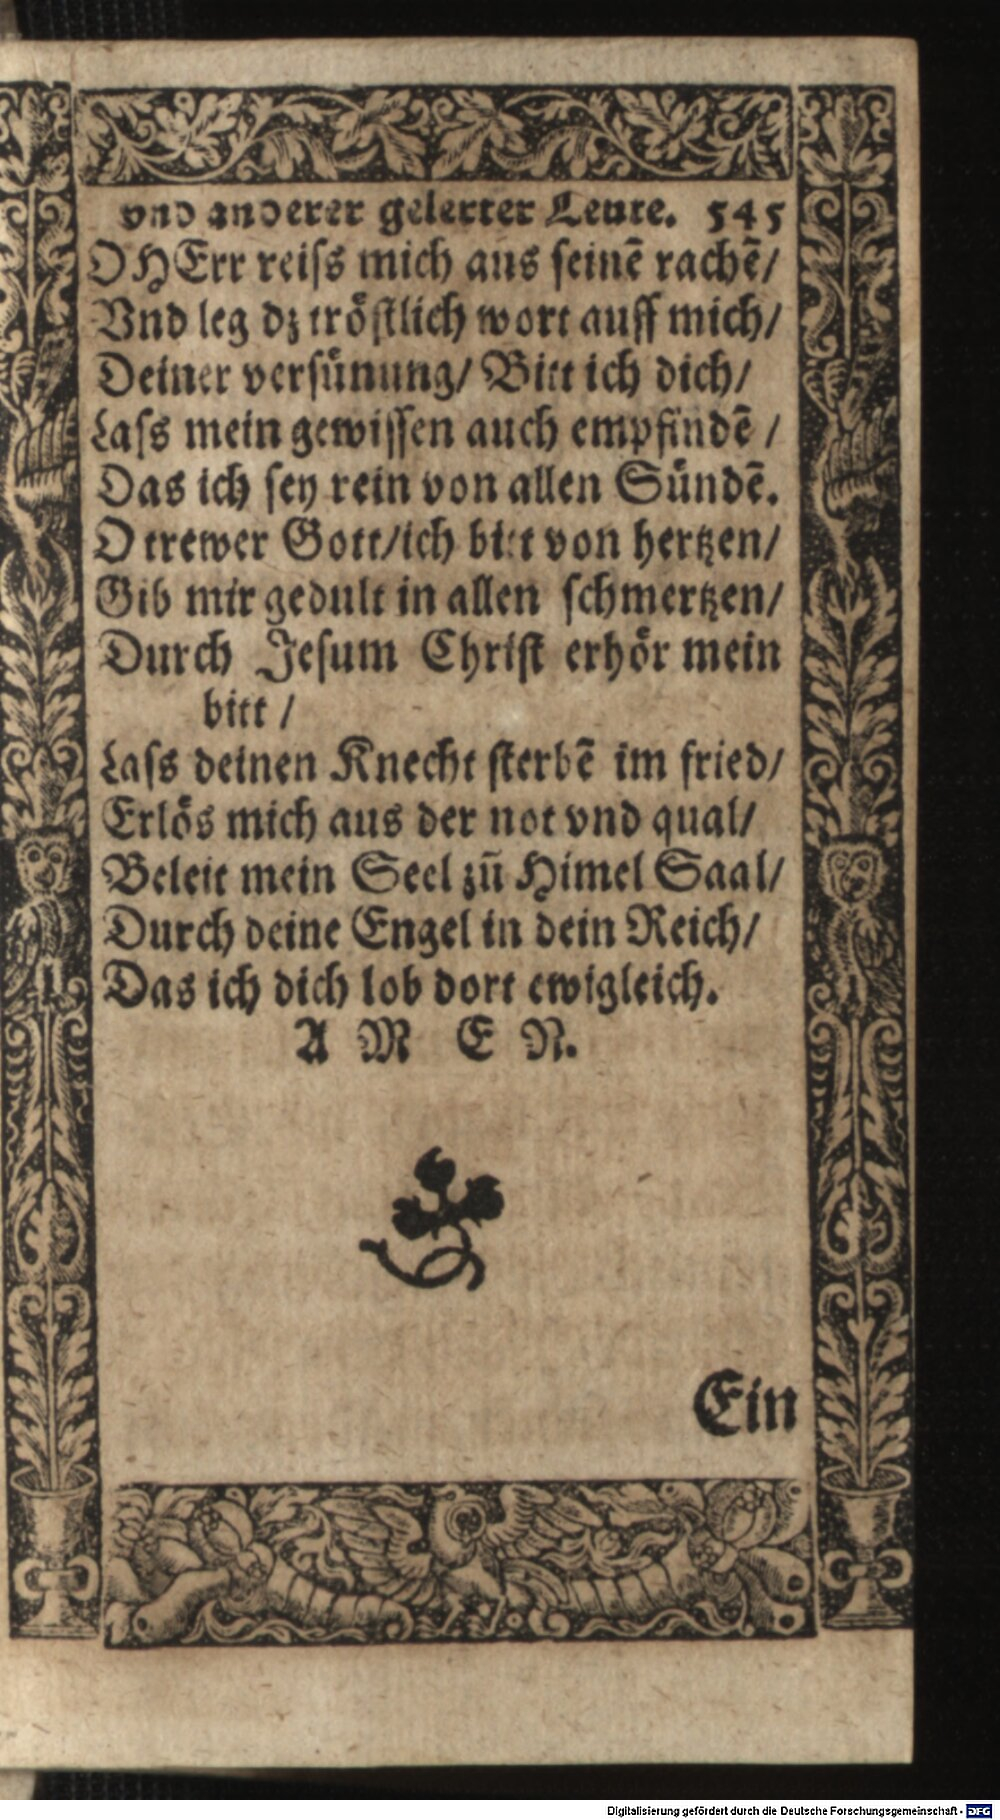 vnd anderer gelerter Leute. 545
O HErr reiſs mich aus ſeinē rachē/
Vnd leg dz tröſtlich wort auff mich/
Deiner verſünung/ Bitt ich dich/
Laſs mein gewiſſen auch empfindē /
Das ich ſey rein von allen Sündē.
O trewer Gott/ich bitt von hertzen/
Gib mir gedult in allen ſchmertzen/
Durch Jeſum Chriſt erhör mein
bitt /
Laſs deinen Knecht ſterbē im fried/
Erlös mich aus der not vnd qual/
Beleit mein Seel zū Himel Saal/
Durch deine Engel in dein Reich/
Das ich dich lob dort ewigleich.
A M E N.
Ein
Digitalisierung gefördert durch die Deutsche Forschungsgemeinschaft - DFG